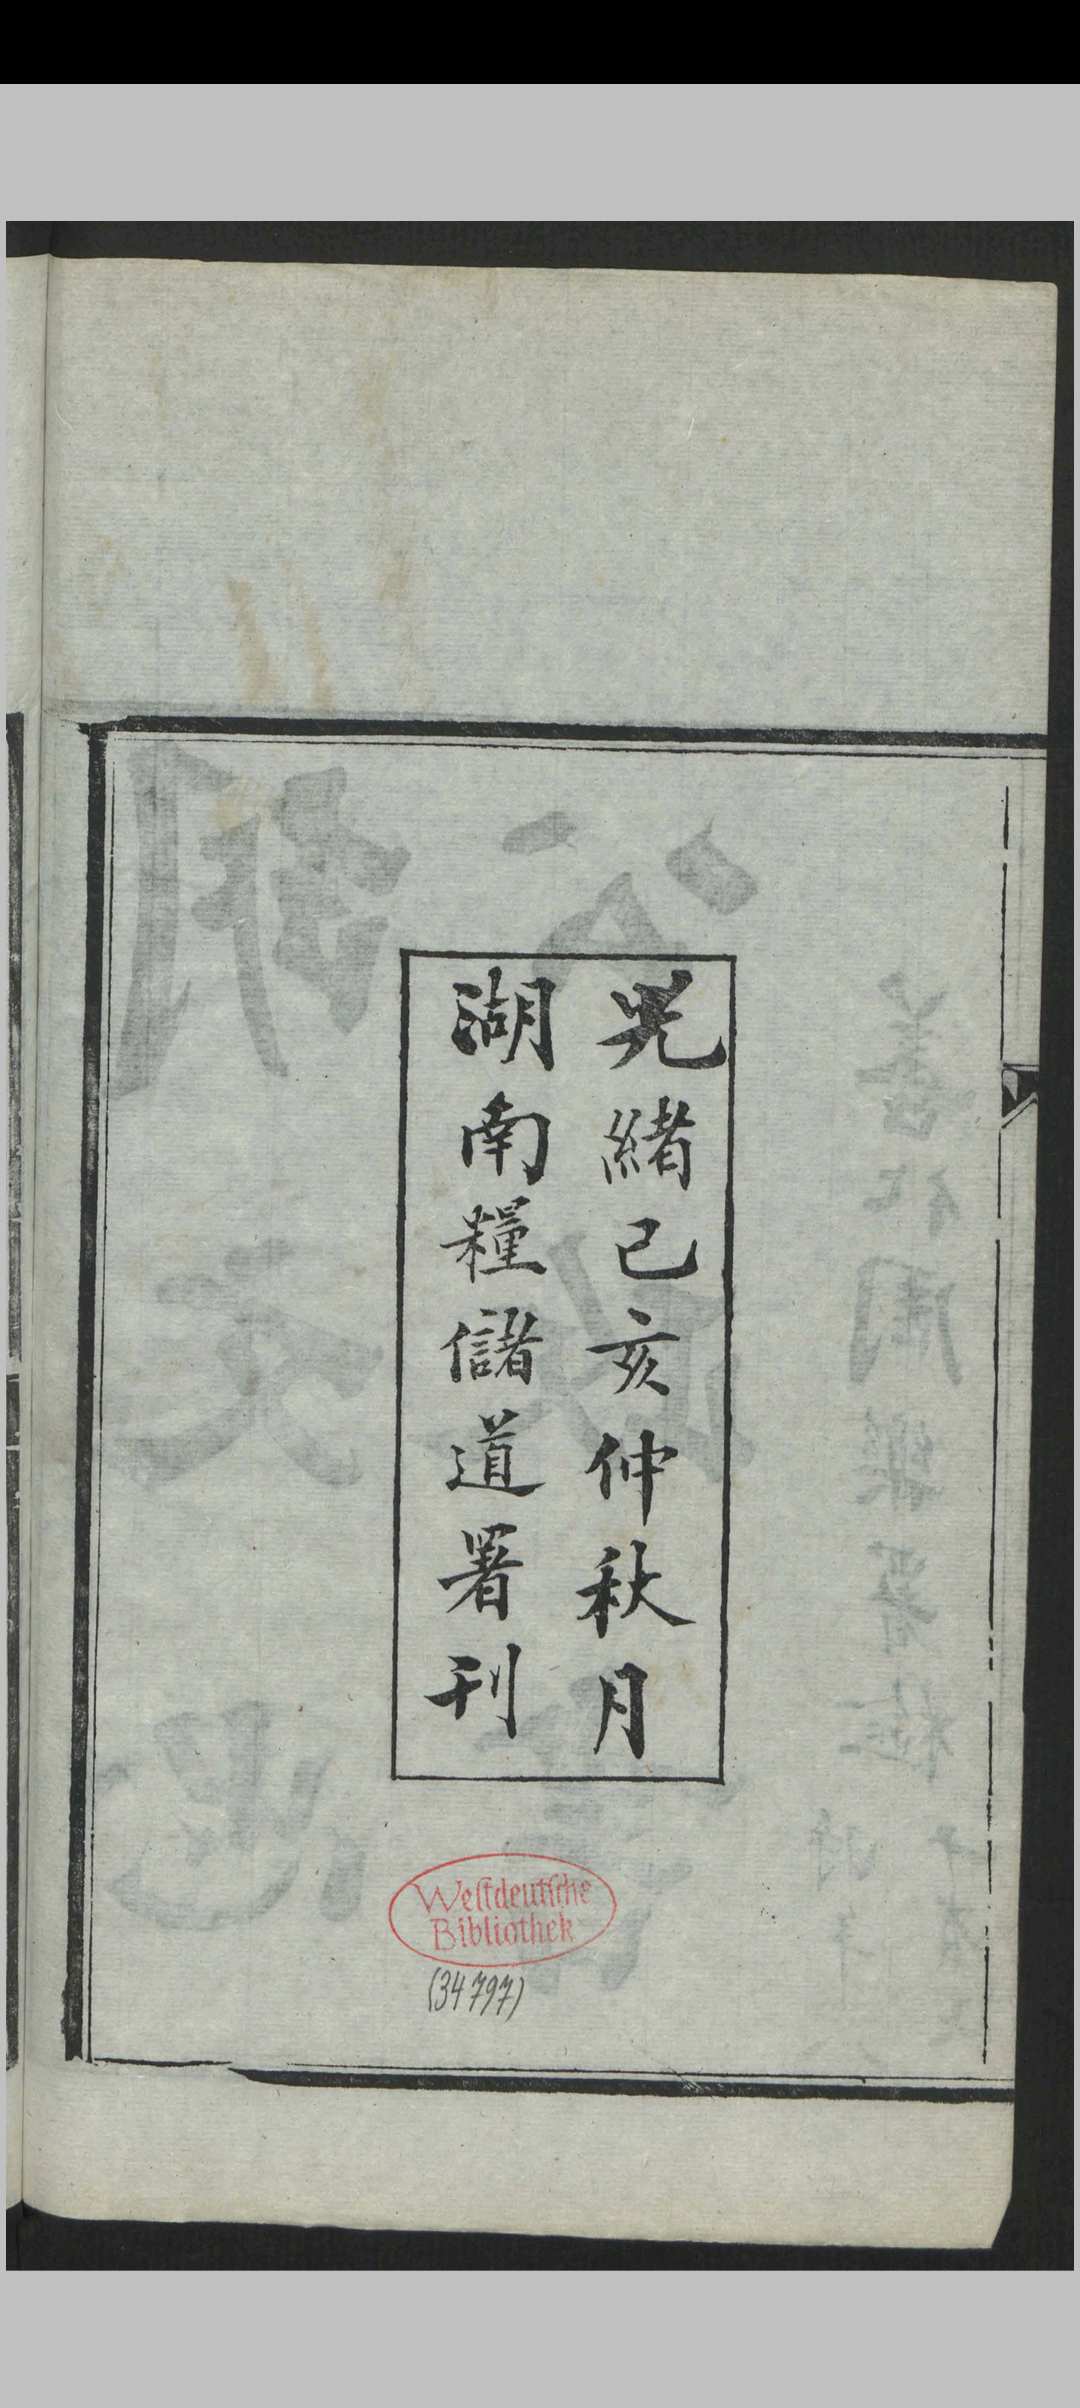 光緒己亥仲秋月
湖南糧儲道署刊
Westdeutsche
Bibliothek
(34797)